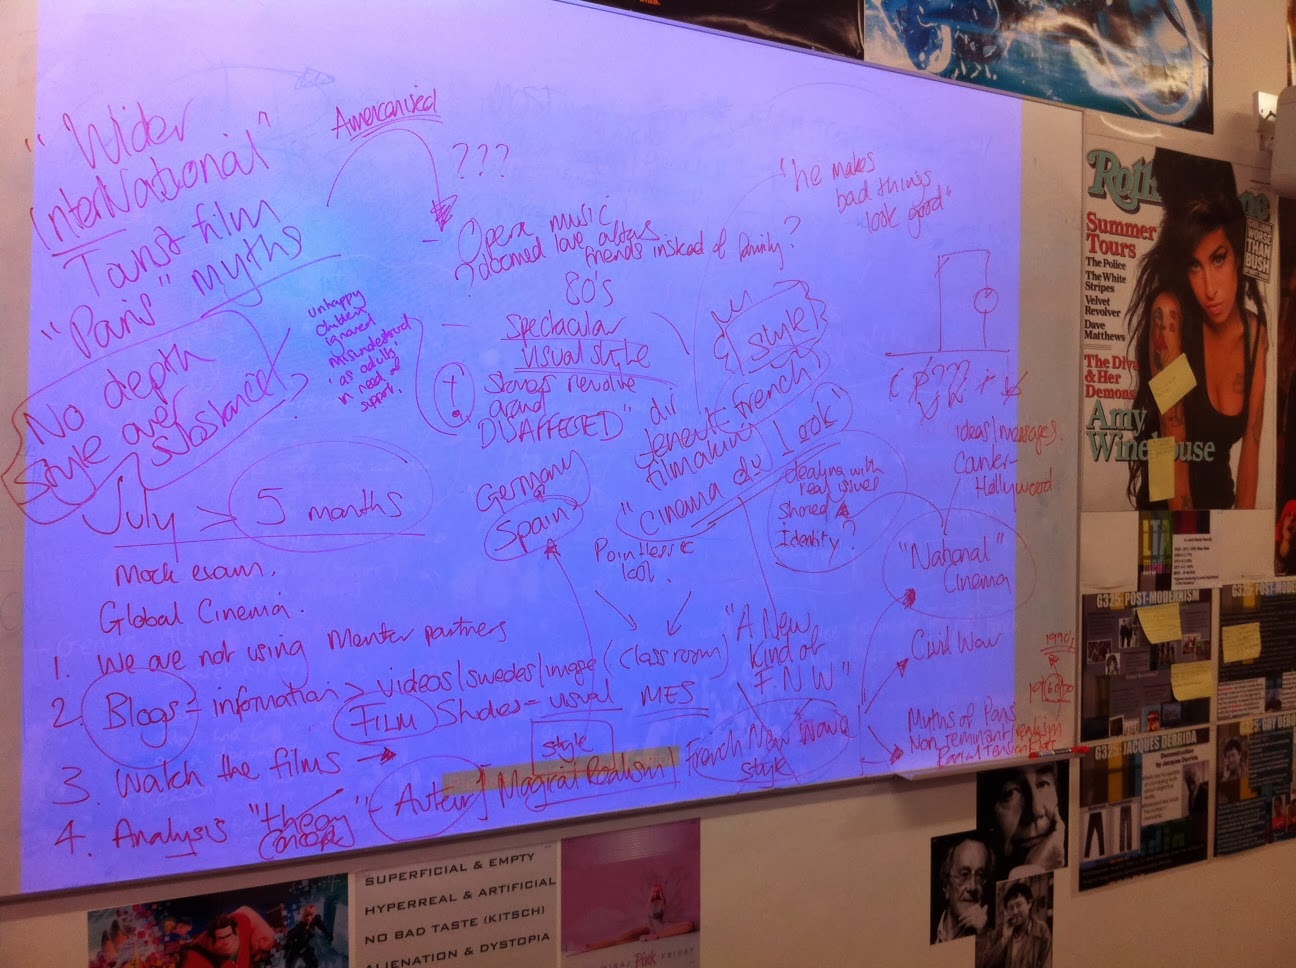 "Wider
InterNational"
Tourist film
"Paris" myths
No depth
style over
substance
July > 5 months
Mock exam.
Global Cinema.
1. We are not using Mentor partners
2. Blogs = information > videos/swedes/image (classroom)
FILM Studies = visual MES
3. Watch the films →
style
4. Analysis "theory - Auteur Magical Realism French New Wave
concepts
style
Americanised
???
- Opera music
? doomed love affairs
friends instead of family?
80's
Spectacular
visual style
Stories revolve
around
DISAFFECTED"
unhappy
children
ignored
misunderstood
"as adults"
in need of
support"
"he makes
bad things
look good"
style
French
filmaking
"Cinema du look"
Germany
Spain
Pointless
dealing with
real issues
shared
Identity?
ideas/messages.
Counter-
Hollywood
"National"
Cinema
"A New
kind of
F.N.W"
Civil War
Myths of Paris
Rolling Stone
Summer
Tours
The Police
The White
Stripes
Velvet
Revolver
Dave
Matthews
The Diva
& Her
Demons
Amy
Winehouse
G325: POST-MODERNISM
G325: POST-MODERNISM
G325: JACQUES DERRIDA
SUPERFICIAL & EMPTY
HYPERREAL & ARTIFICIAL
NO BAD TASTE (KITSCH)
ALIENATION & DYSTOPIA
Pink FRIDAY